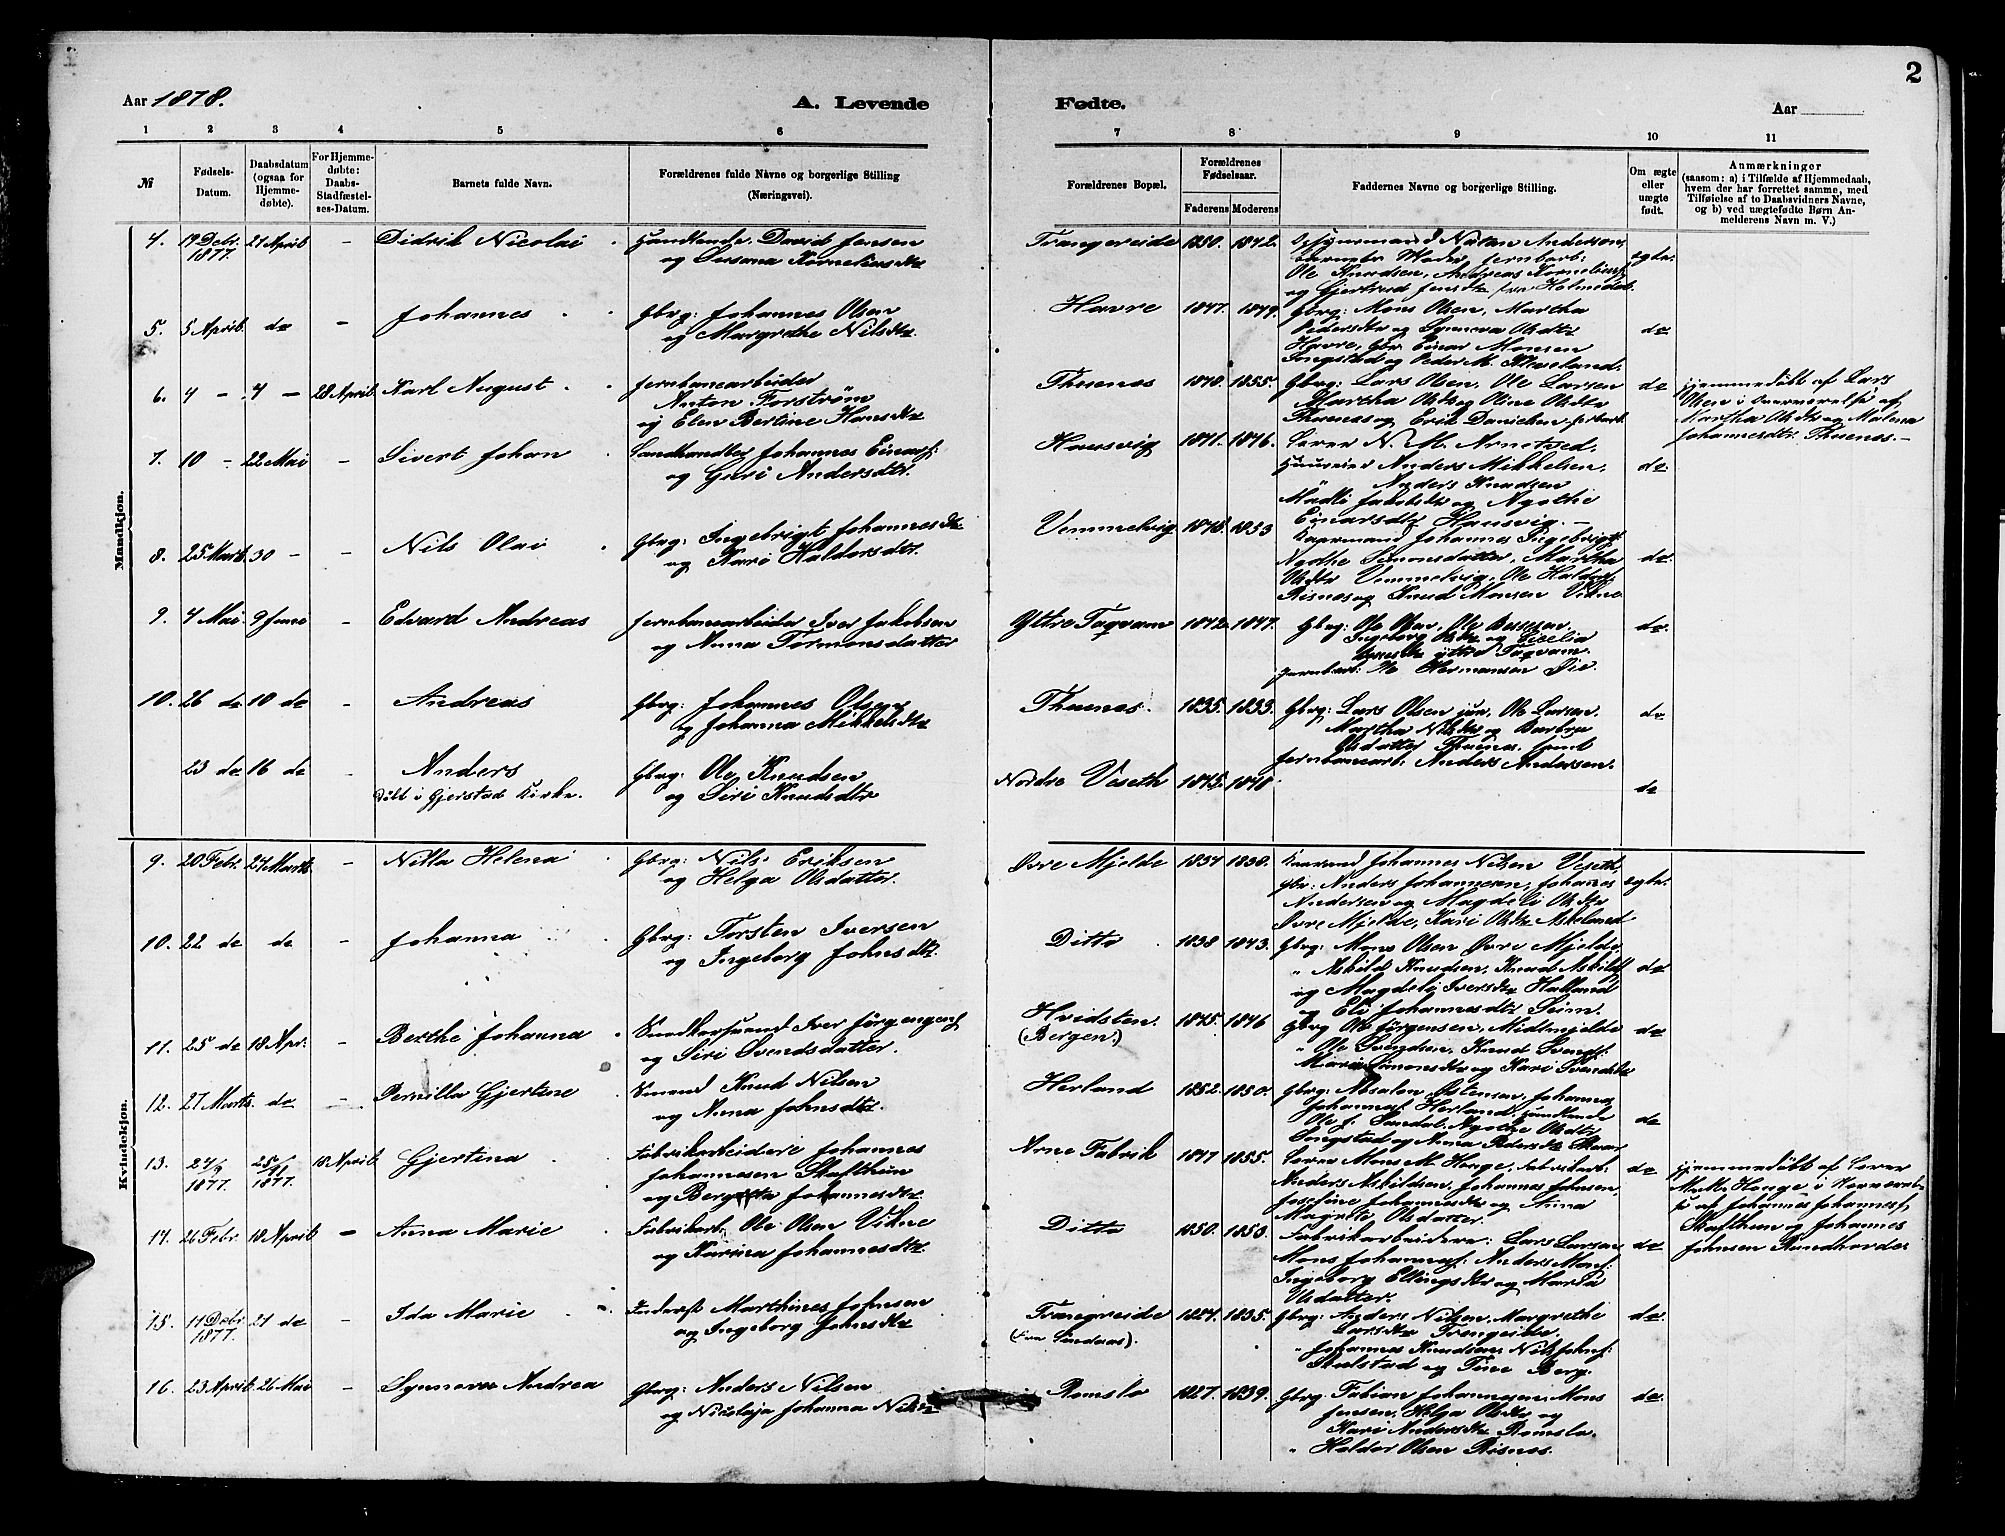 2
Aar 1878.
A. Levende
Fødte.
Aar
1 2 3 4 5 6 7 8 9 10 11
№
Fødsels-
Datum.
Daabsdatum
(ogsaa for
Hjemme-
døbte).
For Hjemme-
døbte:
Daabs-
Stadfæstel-
ses-Datum.
Barnets fulde Navn.
Forældrenes fulde Navne og borgerlige Stilling
(Næringsvei).
Forældrenes Bopæl.
Forældrenes
Fødselsaar.
Faderens Moderens
Faddernes Navne og borgerlige Stilling.
Om ægte
eller
uægte
født.
Anmærkninger
(saasom: a) i Tilfælde af Hjemmedaab,
hvem der har forrettet samme, med
Tilføielse af to Daabsvidners Navne,
og b) ved uægtefødte Børn An-
melderens Navn m. V.)
Mandkjøn.
4. 19 Debr. 1877. 21 April - Didrik Nicolai
Handlende David Jensen
og Susana Korneliusdtr
Trangereide 1850. 1842.
Natan Andersen,
Ole Knudsen, Andreas Korneliusf
og Gjertrud Jensdtr fra Holmedal.
ægte.
5. 5 April. do - Johannes
Gbrg: Johannes Olsen
og Margrethe Nilsdtr.
Havre 1847. 1849.
Gbrg: Mons Olsen, Martha
Pedersdtr og Synneva Olsdtr
Havre, Gbr. Einar Monsen
Songstad og Peder M.
do
6. 4 - 4 - 28 April. Karl August
Jernbanearbeider
Anton Forström
og Elen Bertine Hansdtr
Thuenes 1848. 1855.
Gbrg: Lars Olsen, Ole Larsen
Martha Olsdtr og Oline Olsdtr
Thuenes og Erik Danielsen jernbarb.
do
Hjemmedøbt af Lars
Olsen i Overværelse af
Martha Olsdtr og Malena
Johannesdtr Thuenes. -
7. 10 - 22 Mai - Sivert Johan
Landhandler Johannes Einarsf:
og Guri Andersdtr.
Hausvig 1841. 1846.
Lærer N. M. Arnetved.
Huuseier Anders Mikkelsen,
Anders Knudsen
Madli Jakobsdtr og Agathe
Einarsdtr Hausvig. -
do.
8. 25 Marts. 30 - - Nils Olai
Gbrg: Ingebrigt Johannesdtr
og Kari Haldorsdtr.
Vemmelvig 1848. 1853
Johannes Ingebrigts
Agthe Simonsdatter, Martha
Olsdtr Vemmelvig, Ole Haldorsf
Risnes og Knud Monsen Vikne
do.
9. 4 Mai. 9 Juni - Edvard Andreas
Jernbanearbeider Iver Jakobsen
og Anna Tormonsdatter
Yttre Taqvam 1842. 1847.
Gbrg: Ole Olsen, Ole
Ingeborg Olsdtr og Cicelia
yttre Taqvam.
Jernbarb: Ole Hermansen Øie.
do.
10. 26 do 10 do - Andreas
Gbrg: Johannes Olsen
og Johanna Mikkelsdtr
Thuenes. 1835. 1833.
Gbrg: Lars Olsen jun, Ole Larsen.
Martha Nilsdtr og Barbra
Olsdatter Thuenes. samt
Jernbanearb. Anders Andersen.
do
23 do 16 do - Anders
Døbt i Gjerstad Kirke.
Gbrg: Ole Knudsen
og Siri Knudsdtr
Nordre Veseth 1845. 1848
do
Kvindekjøn.
9. 20 Febr. 27 Marts. - Nilla Helena
Gbrg: Nils Eriksen
og Helga Olsdatter.
Øvre Mjelde 1834 1838.
Johannes Nilsen Veseth,
Gbr: Anders Johannesen, Johanes
Andersen og Magdeli Olsdtr
Øvre Mjelde, Kari Olsdtr Askeland
ægte.
10. 22 do do - Johanna
Gbrg: Torsten Iversen
og Ingeborg Johnsdtr.
Ditto 1838 1843.
Gbrg: Mons Olsen Øvre Mjelde,
" Askild Knudsen, Knud Askilds
og Magdeli Iversdtr Halland
og Eli Johannesdtr Seim.
do
11. 25 do 18 Apr. - Berthe Johanna
Snedkersvend Iver Jørgengens
og Siri Svendsdatter.
Hvidsten.
(Bergen.)
1845. 1846
Gbrg Ole Jörgensen, Midtmjelde
" Ole Svendsen, Knud Svends:
Maria Simonsdtr og Kari Svendsdtr
do
12. 27 Marts. do - Pernilla Gjertine
Smed Knud Nilsen
og Anna Johnsdtr.
Herland 1852. 1850.
Gbrg: Absalon Østensen, Johannes
Johannesf. Herland, Handlende
Ole J. Sandal, Agathe Olsdtr
Songstad og Anna Pedersdtr
do
13. 24/9 1877. 25/11 1877. 18 April. Gjertina
Fabrikarbeidere Johannes
Johannesen Skafthun
og Bergetta Johannesdtr
Arne Fabrik 1847 1855.
Lærer Mons M. Houge, Fabrikarb:
Anders Askildsen, Johannes Johnsen,
Josefine Johannesdtr og Anna
Magrete Olsdatter.
do
Hjemmedöbt af Lærer
M. Houge i Overværel-
se af Johannes Johannesf.
Skafthun og Johannes
Johnsen Rundhovde
14. 26 Febr. 18 April - Anna Marie
Fabrikarb. Ole Olsen Vikne
og Karina Johannesdtr.
Ditto 1850. 1853.
Fabrikarbeidere: Lars Larsen,
Mons Johannesf: Anders Monsf:
Ingeborg Ellingsdtr og Maria
Olsdatter.
do
15. 11 Debr 1877. 21 do - Ida Marie
Inderst Marthines Johnsen
og Ingeborg Johnsdtr
Trangreide
(fra Lindaas).
1827. 1835.
Gbrg: Anders Nilsen, Margrethe
Larsdtr Trangeide.
" Johannes Knudsen, Nils Johnsf:
Stalstad og Tine Berg.
do.
16. 23 April. 26 Mai - Synnøva Andrea
Gbrg: Anders Nilsen
og Nicolaja Johanna Nilsdtr
Romslo 1827. 1839.
Gbrg: Fabian Johannesen, Mons
Jensen, Helga Olsdtr og
Kari Andersdtr Romslo.
" Haldor Olsen Risnes.
do.